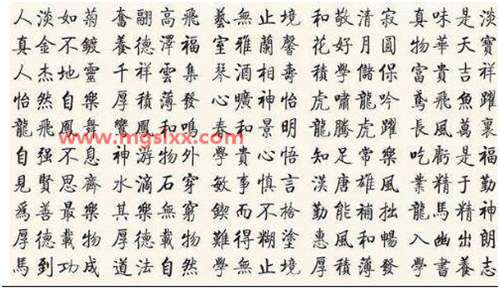 人淡如菊 奮翮高飛 藝無止境 和敬清寂 真味是淡
真金不鍍 養德澤福 室雅蘭馨 花好月圓 物華天寶
人杰地靈 千祥雲集 琴酒相壽 積學儲保 富貴吉祥
怡然自樂 厚積薄發 心曠神怡 虎嘯龍吟 鳶飛魚躍
龍飛鳳舞 鸞鳳和鳴 春和景明 龍騰虎躍 長風萬裏
www.mgslxx.com
自强不息 神游物外 和貴心悟 知足常樂 吃虧是福
見賢思齊 水滴石穿 敏事慎言 漢唐雄風 業精于勤
爲善最樂 其樂無窮 鍥而不捨 勤能補拙 龍馬精神
厚德載物 厚德載物 難得糊塗 惠風和暢 入幽出朗
馬到功成 道法自然 學無止境 厚積薄發 學書養志